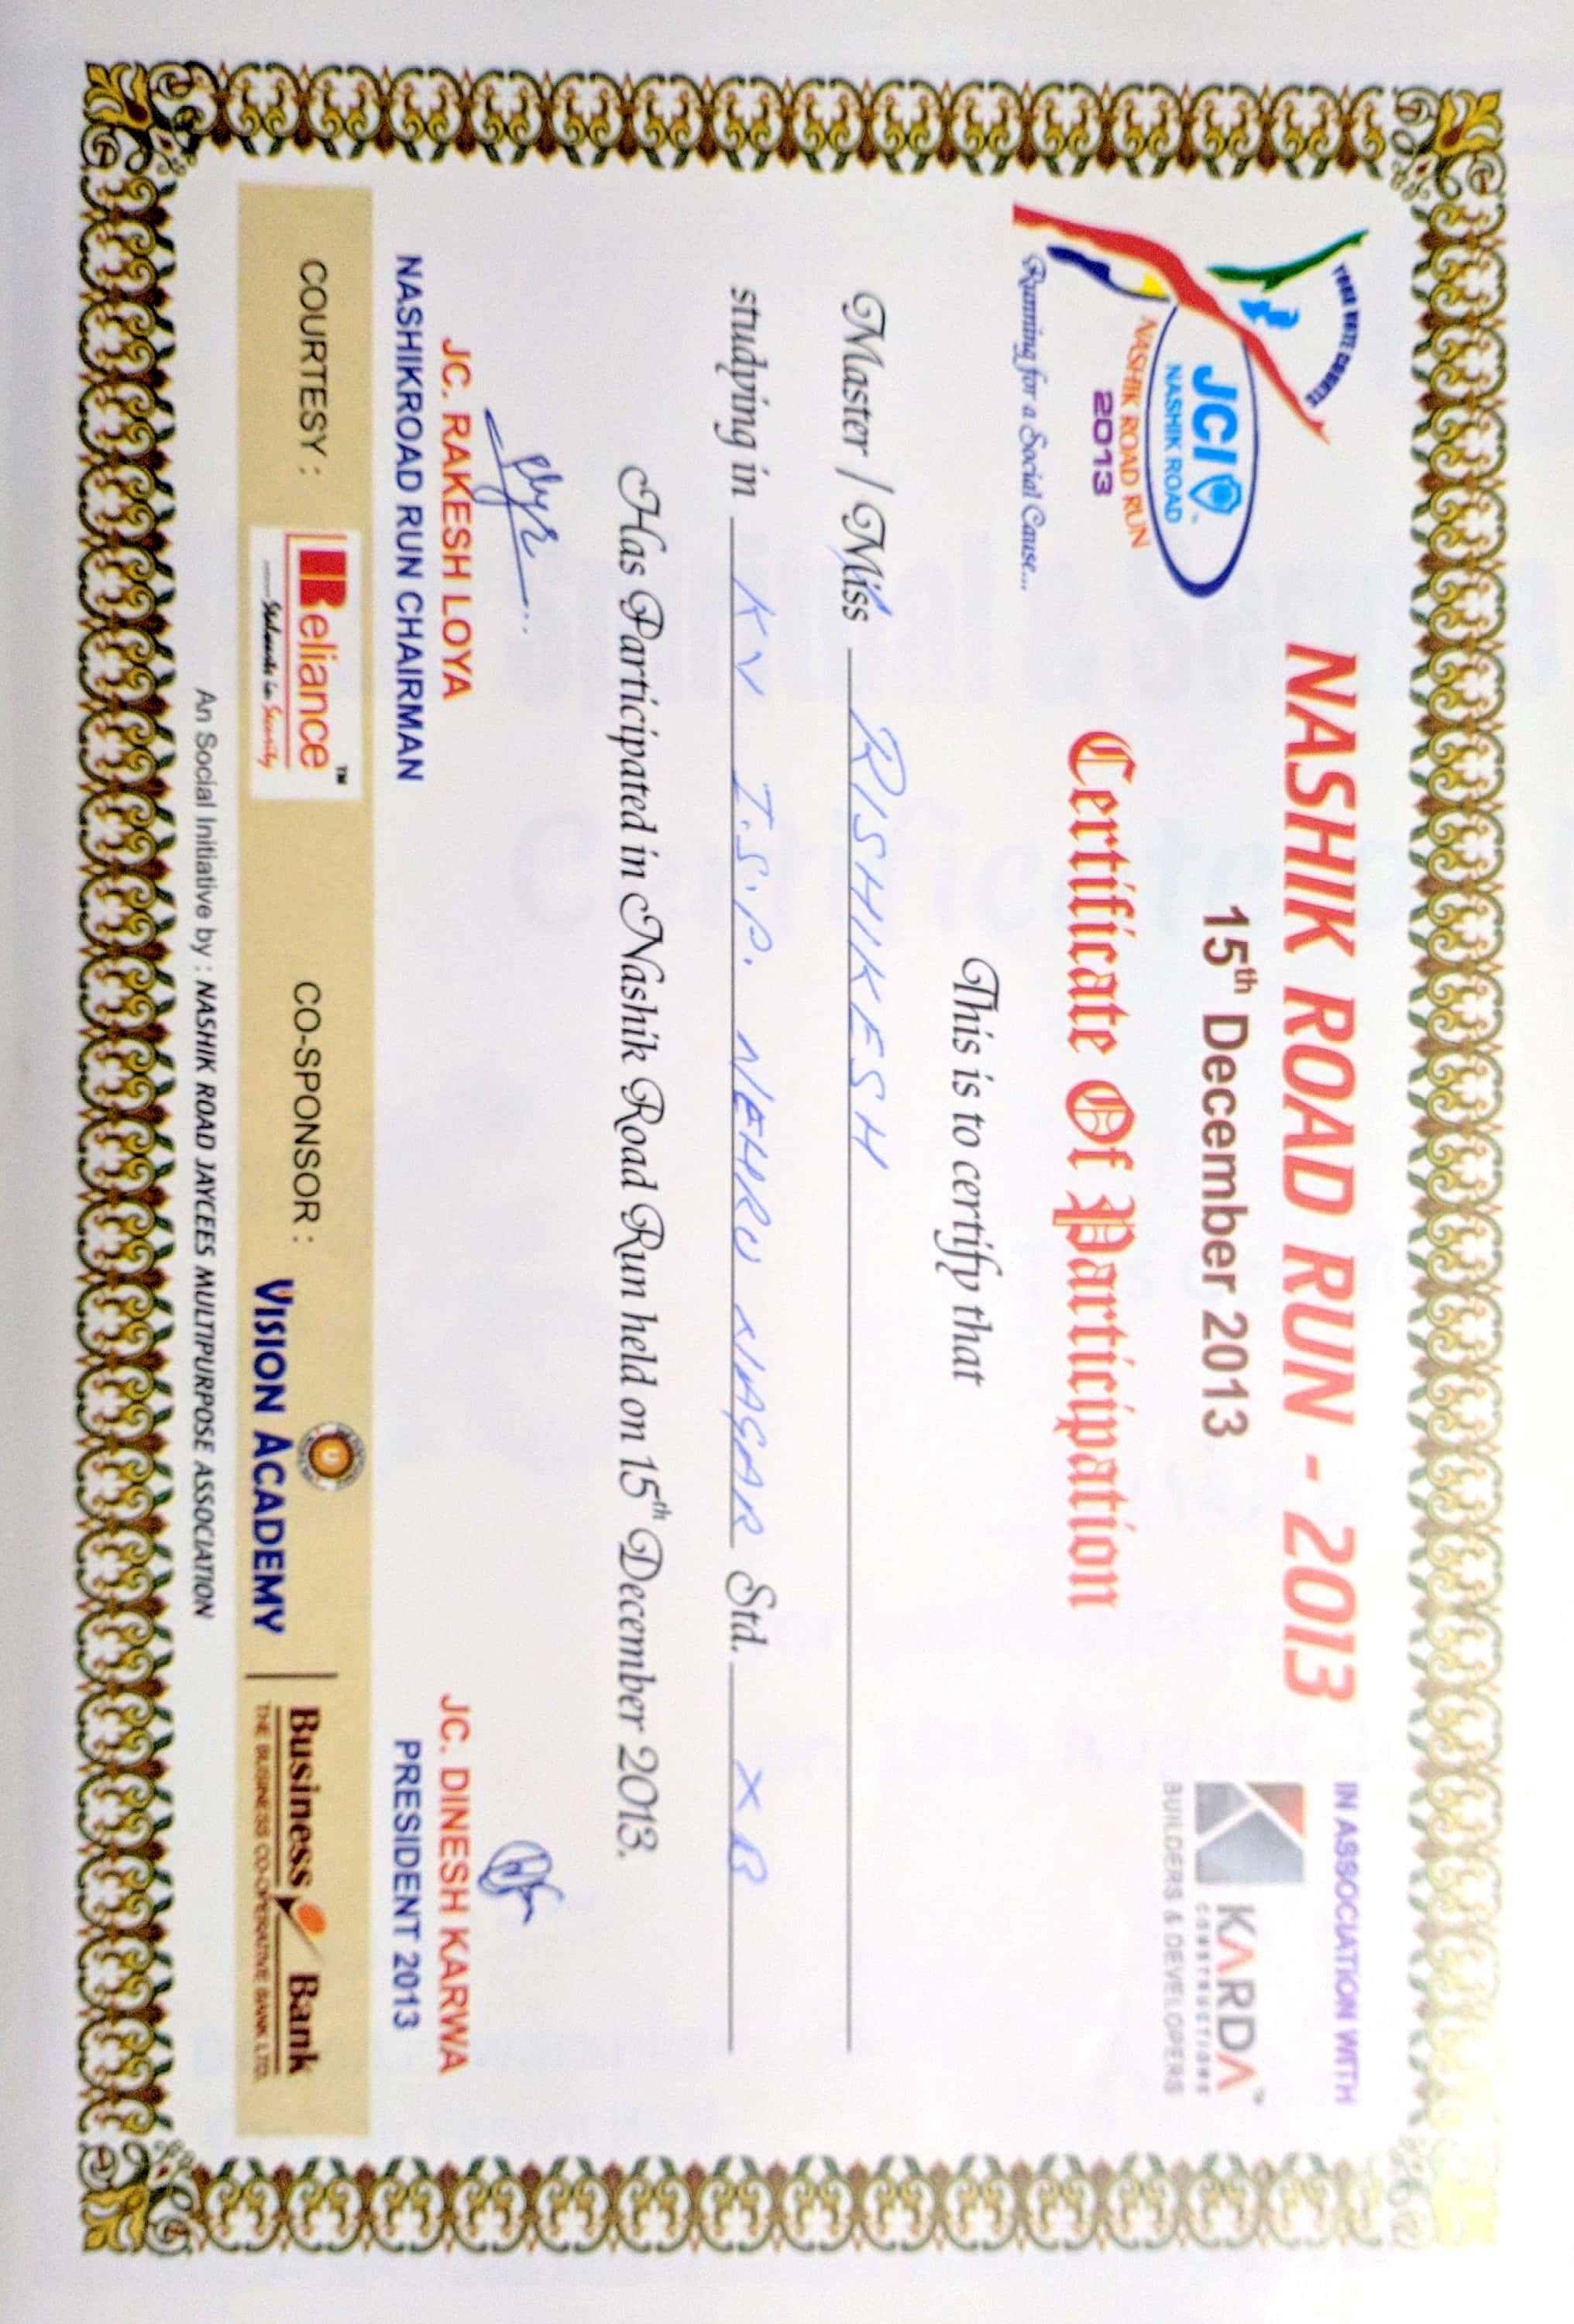 YOUR VOTE COUNTS
JCI
NASHIK ROAD
NASHIK ROAD RUN
2013
Running for a Social Cause...
NASHIK ROAD RUN - 2013
15th December 2013
IN ASSOCIATION WITH
KARDA™
CONSTRUCTIONS
BUILDERS & DEVELOPERS
Certificate Of Participation
This is to certify that
Master / Miss RISHIKESH
studying in KV I.S.P. NEHRU NAGAR Std. X B
Has Participated in Nashik Road Run held on 15th December 2013.
JC. RAKESH LOYA
NASHIKROAD RUN CHAIRMAN
JC. DINESH KARWA
PRESIDENT 2013
COURTESY : Reliance™
Stalwarts in Security
CO-SPONSOR : VISION ACADEMY
Business Bank
THE BUSINESS CO-OPERATIVE BANK LTD.
An Social Initiative by : NASHIK ROAD JAYCEES MULTIPURPOSE ASSOCIATION